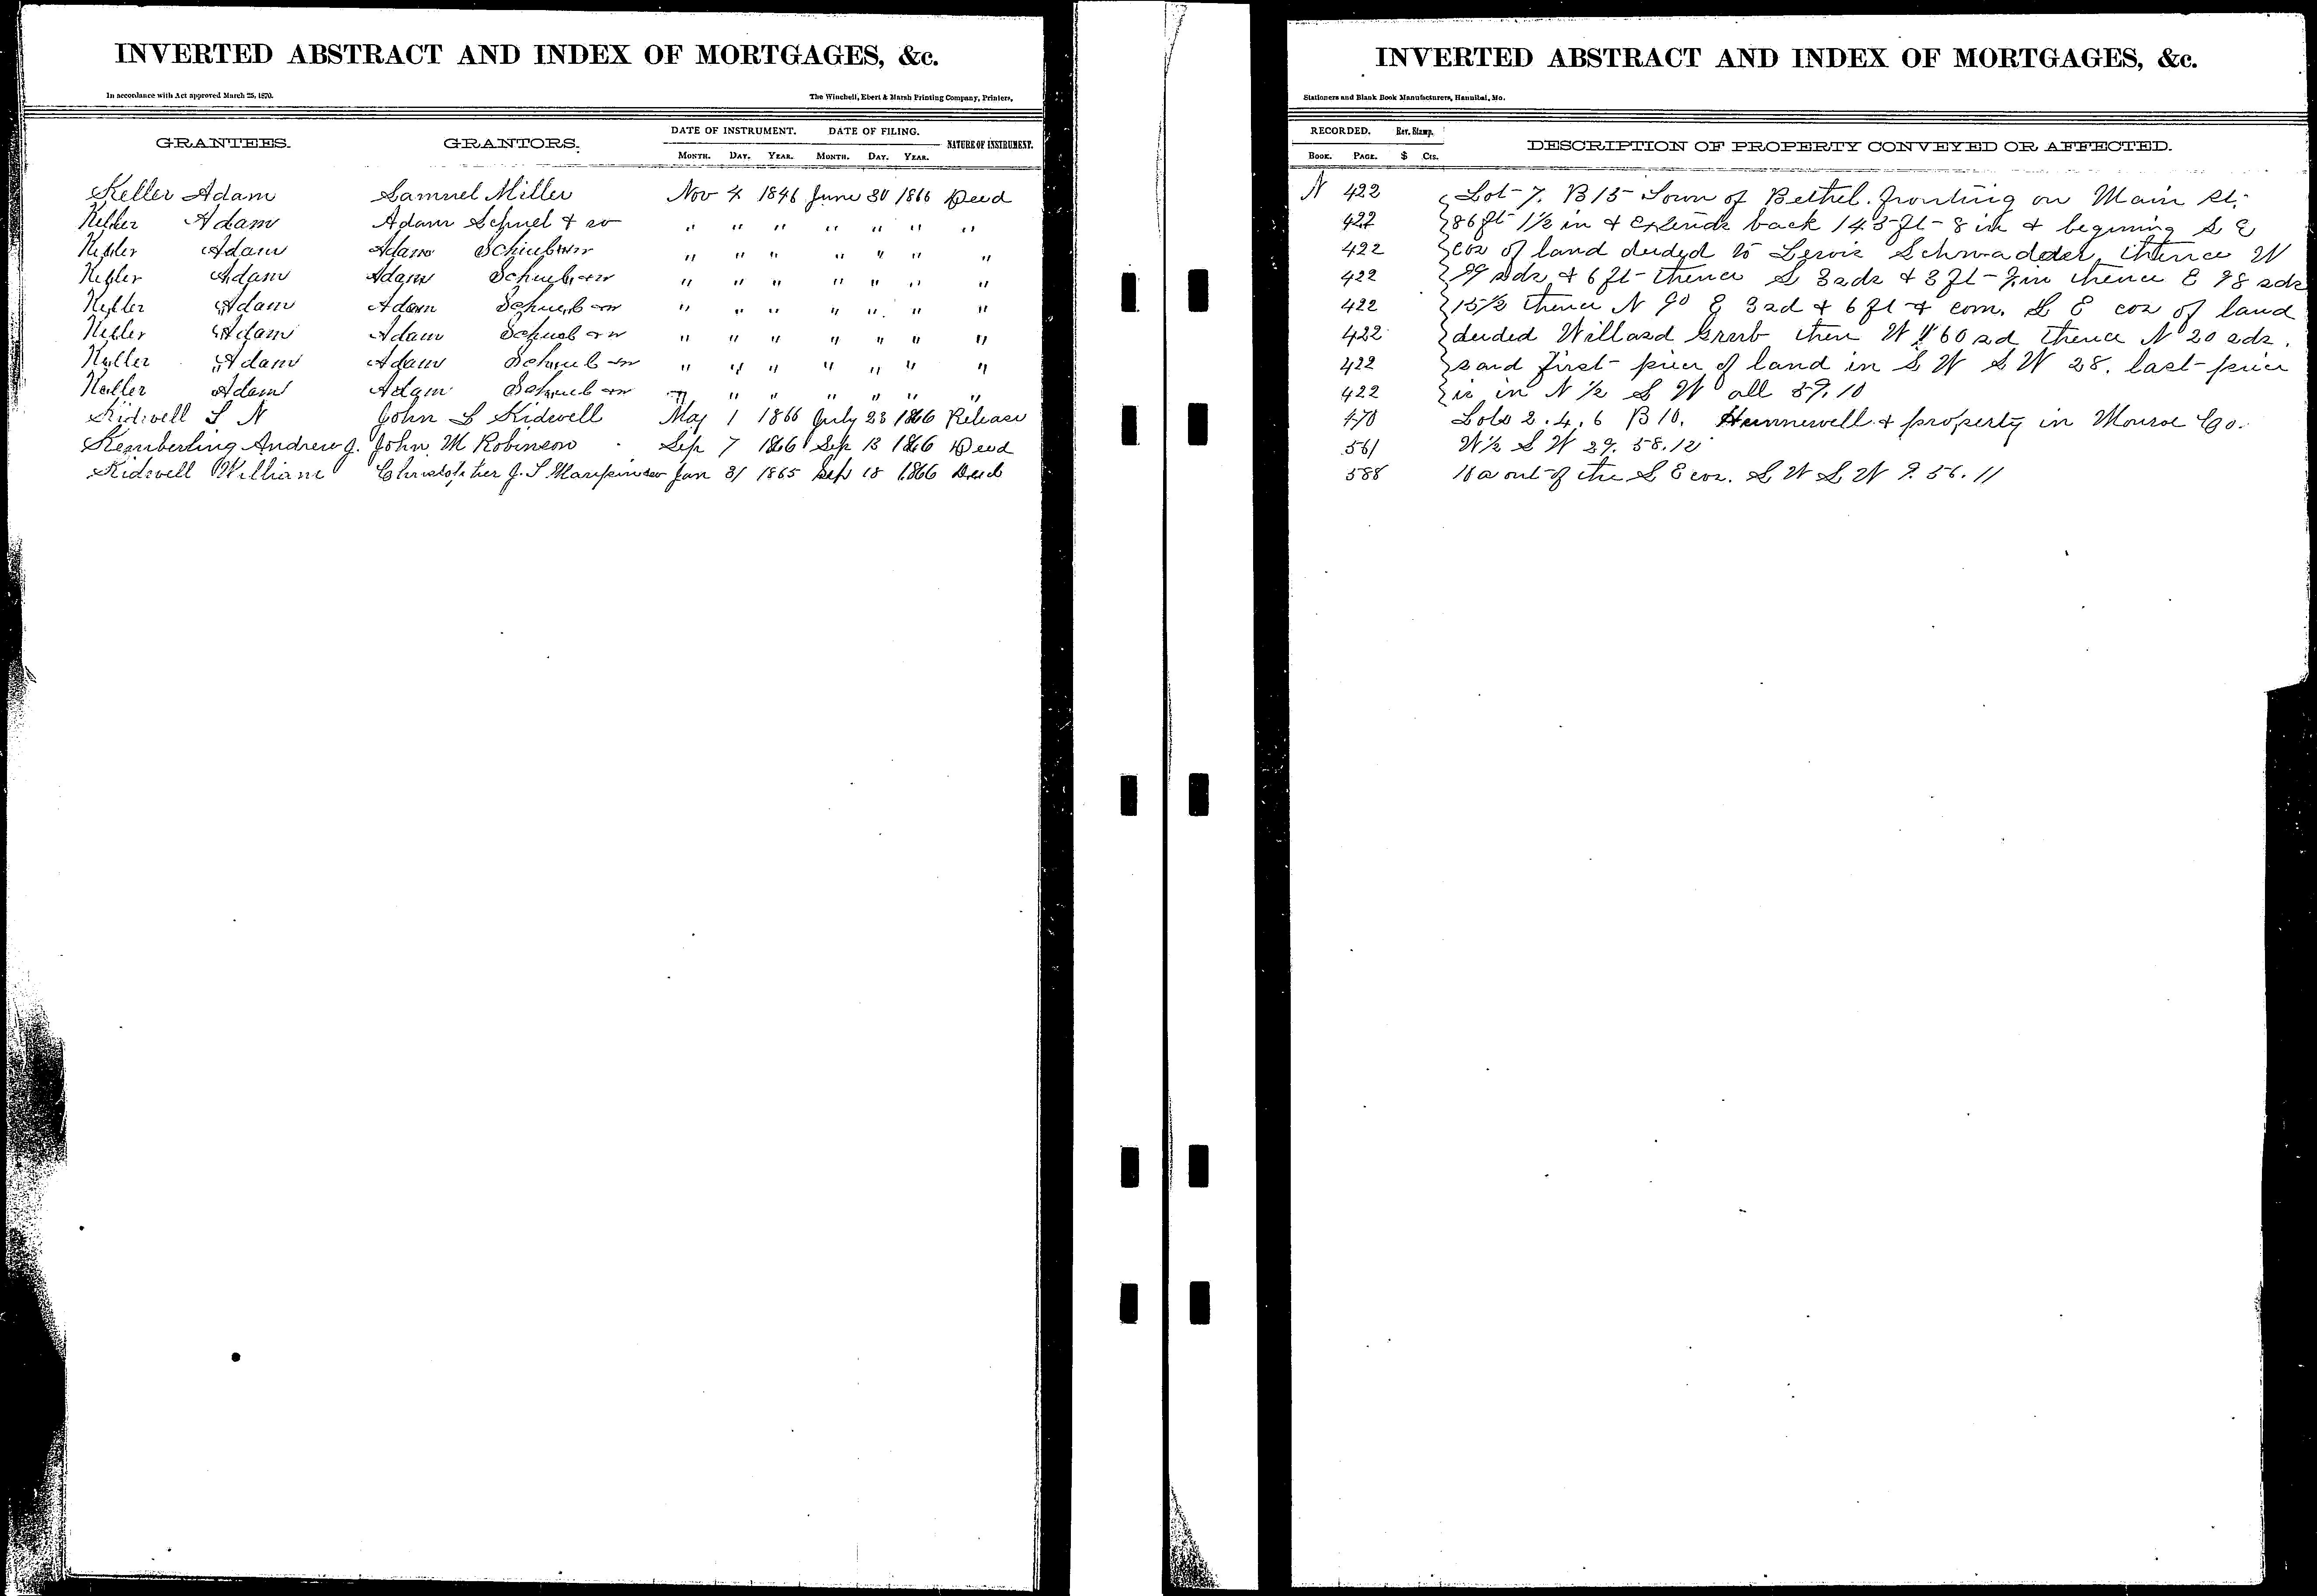 INVERTED ABSTRACT AND INDEX OF MORTGAGES, &c.
In accordance with Act approved March 25, 1870. The Winchell, Ebert & Marsh Printing Company, Printers,
GRANTEES. GRANTORS. DATE OF INSTRUMENT. DATE OF FILING. NATURE OF INSTRUMENT.
MONTH. DAY. YEAR. MONTH. DAY. YEAR.
Keller Adam Samuel Miller Nov 4 1846 June 30 1866 Deed
Keller Adam Adam & " " " " " " "
Keller Adam Adam " " " " " " "
Keller Adam Adam " " " " " " "
Keller Adam Adam " " " " " " "
Keller Adam Adam " " " " " " "
Keller Adam Adam " " " " " " "
Keller Adam Adam " " " " " " "
Kidwell S N John S Kidwell May 1 1866 July 23 1866 Release
Kemberling Andrew J. John M Robinson Sep 7 1866 Sep 13 1866 Deed
Kidwell William Christopher J. S Jan 31 1865 Sep 18 1866 Deed
INVERTED ABSTRACT AND INDEX OF MORTGAGES, &c.
Stationers and Blank Book Manufacturers, Hannibal, Mo.
RECORDED. Rev. Stamp. DESCRIPTION OF PROPERTY CONVEYED OR AFFECTED.
BOOK. PAGE. $ Cts.
N 422 Lot 7. B 15 Town of Bethel. fronting on Main St.
422 86 ft 1½ in & Extends back 145 ft 8 in & begining S E
422 cor of land deeded to Lewis Schwadder, thence W
422 99 rds & 6 ft thence S 3 rds & 3 ft in thence E 98 rds
422 15½ thence N 90 E 3 rd & 6 ft & com. S E cor of land
422 deeded Willard then W 60 rd thence N 20 rds.
422 said first piece of land in S W S W 28. last piece
422 is in N ½ S W all 59. 10
470 Lots 2. 4. 6 B 10. Hunnewell & property in Monroe Co.
561 W½ S W 29. 58. 12
588 10 a out of the S E cor. S W S W 9. 56. 11